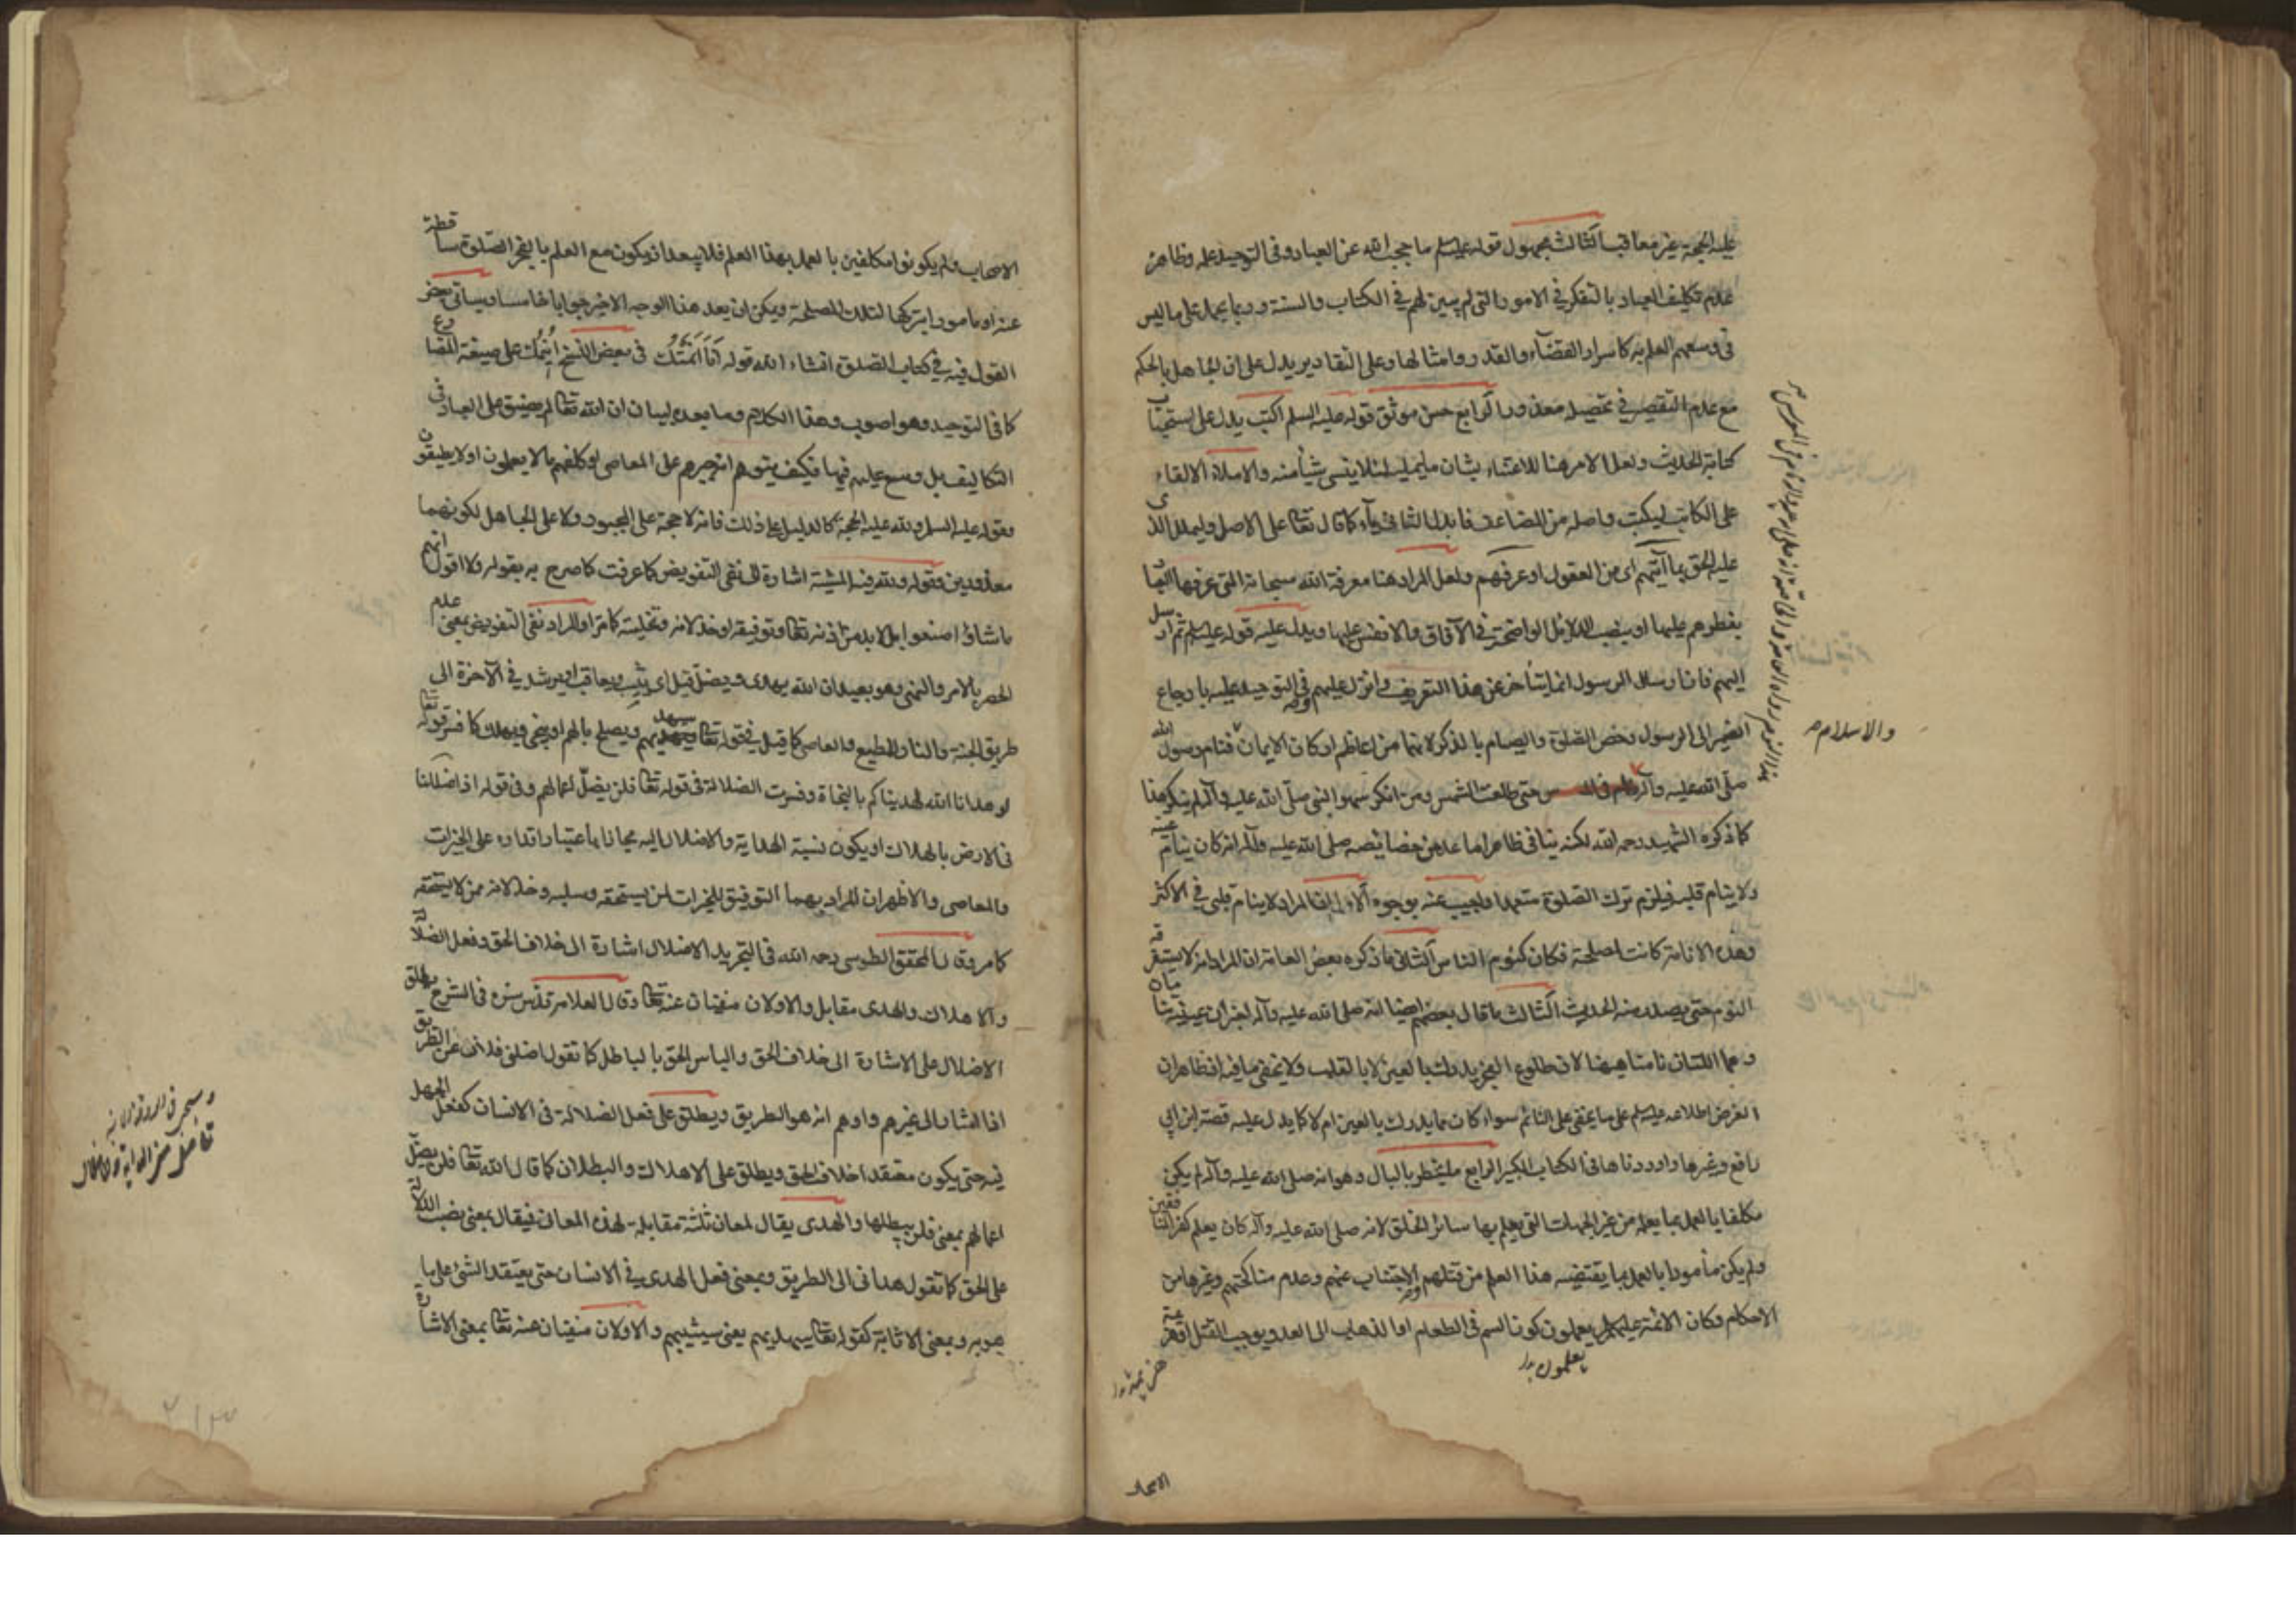 عليه الحجة غير معاقب الثالث مجهول قوله عليه السلم ما حجب الله عن العباد وفى التوحيد علمه وظاهره
عدم تكليف العباد بالتفكر فى الامور التى لم يبين لهم فى الكتاب والسنة وربما يحمل على ما ليس
فى وسعهم العلم به كاسرار القضاء والقدر وامثالها وعلى التقادير يدل على ان الجاهل بالحكم
مع عدم التقصير فى تحصيله معذور الرابع حسن موثق قوله عليه السلم اكتب يدل على استحباب
كتابة الحديث ولعل الامر هنا للاعتناء بشان ما يمليه لئلا ينسى شيأ منه والاملاء الالقاء
على الكاتب ليكتب واصله من المضاعف فابدل الثانى ياء كما قال تعالى على الاصل وليملل الذى
عليه الحق بما آتيهم اى من العقول وعرفهم ولعل المراد هنا معرفة الله سبحانه التى عرفها العباد
بفطرهم عليها او بنصب الدلائل الواضحة فى الآفاق والانفس عليها ويدل عليه قوله عليه السلم ثم ارسل
اليهم فان ارسال الرسول انما يتأخر عن هذا التعريف وانزل عليهم وفى التوحيد عليه بارجاع
الضمير الى الرسول وخص الصلوة والصيام بالذكر لانهما من اعاظم اركان الايمان فنام رسول الله
والاسلام
صلى الله عليه وآله حتى طلعت الشمس ومن انكر سهو النبى صلى الله عليه وآله لم ينكر هذا
كما ذكره الشهيد رحمه الله لكنه ينافى ظاهرا ما عد من خصائصه صلى الله عليه وآله انه كان ينام عينه
ولا ينام قلبه فيلزم ترك الصلوة متعمدا واجيب عنه بوجوه الاول ان المراد لا ينام قلبى فى الاكثر
وهذه الانامة كانت لمصلحة فكان كنوم الناس الثانى ما ذكره بعض العامة ان المراد انه لا يستغرقه
النوم حتى يصدر منه الحديث الثالث ما قال بعضهم ايضا انه صلى الله عليه وآله اخبر ان عينيه تنامان
وهما اللتان نامتا هيهنا لان طلوع الفجر يدرك بالعين لا بالقلب ولا يخفى ما فيه اذ ظاهر ان
الغرض اطلاعه عليه السلم على ما يخفى على النائم سواء كان مما يدرك بالعين ام لا كما يدل عليه قصة ابن ابى
رافع وغيرها واوردناها فى الكتاب الكبير الرابع ما يخطر بالبال وهو انه صلى الله عليه وآله لم يكن
مكلفا بالعمل بما يعلمه من غير الجهات التى يعلم بها سائر الخلق لانه صلى الله عليه وآله كان يعلم كفر المنافقين
ولم يكن مأمورا بالعمل بما يقتضيه هذا العلم من قتلهم والاجتناب عنهم وعدم مناكحتهم وغيرها من
الاحكام وكان الائمة عليهم السلم يعلمون كون السم فى الطعام او الذهاب الى العدو يوجب القتل
يعلمون
الاصحاب ولم يكونوا مكلفين بالعمل بهذا العلم فلا يبعد ان يكون مع العلم بالفجر الصلوة ساقطة
عنه او مامورا بتركها لتلك المصلحة ويمكن ان يعد هذا الوجه الاخير جوابا خامسا وسيأتى بعض
القول فيه فى كتاب الصلوة انشاء الله قوله انا انمتك فى بعض النسخ انيمك على صيغة المضارع
كما فى التوحيد وهو اصوب وهذا الكلام وما بعده لبيان ان الله تعالى لم يضيق على العباد فى
التكاليف بل وسع عليهم فيها فكيف يتوهم انه جبرهم على المعاصى او كلفهم بما لا يعلمون او لا يطيقون
وقوله عليه السلم ولله عليه الحجة كالدليل على ذلك فانه لا حجة على المجبور ولا على الجاهل لكونهما
معذورين وقوله ولله فيه المشية اشارة الى نفى التفويض كما عرفت كما صرح به بقوله ولا اقول انهم
ما شاؤا صنعوا بل لا بد من اذنه تعالى وتوفيقه او خذلانه وتخليته كما مر او المراد نفى التفويض بمعنى عدم
الحصر بالامر والنهى وهو بعيد ان الله يهدى ويضل قيل اى يثيب ويعاقب او يرشد فى الآخرة الى
طريق الجنة والنار للمطيع والعاصى كما قيل فى قوله تعالى سيهديهم ويصلح بالهم او ينجى ويهلك كما فسر قوله تعالى
لو هدانا الله لهديناكم بالنجاة وفسرت الضلالة فى قوله تعالى فلن يضل اعمالهم وفى قوله اذا ضللنا
فى الارض بالهلاك او يكون نسبة الهداية والاضلال اليه مجازا باعتبار اقداره على الخيرات
والمعاصى والاظهر ان المراد بهما التوفيق للخيرات لمن يستحقه وسلبه وخذلانه ممن لا يستحقه
كما مر وقال المحقق الطوسى رحمه الله فى التجريد الاضلال اشارة الى خلاف الحق وفعل الضلالة
والاهلاك والهدى مقابل والاولان منفيان عنه تعالى وقال العلامة قدس سره فى الشرح يطلق
الاضلال على الاشارة الى خلاف الحق والباس الحق بالباطل كما تقول اضلنى فلان عن الطريق
اذا اشار الى غيرهم واوهم انه هو الطريق ويطلق على فعل الضلالة فى الانسان كفعل الجهل
فيه حتى يكون معتقدا خلاف الحق ويطلق على الاهلاك والبطلان كما قال الله تعالى فلن يضل
اعمالهم بمعنى فلن يبطلها والهدى يقال لمعان ثلثة مقابلة لهذه المعانى فيقال بمعنى نصب الدلالة
على الحق كما تقول هدانى الى الطريق وبمعنى فعل الهدى فى الانسان حتى يعتقد الشئ على ما
هو به وبمعنى الاثابة كقوله تعالى سيهديهم يعنى سيثيبهم والاولان منفيان عنه تعالى بمعنى الاشارة